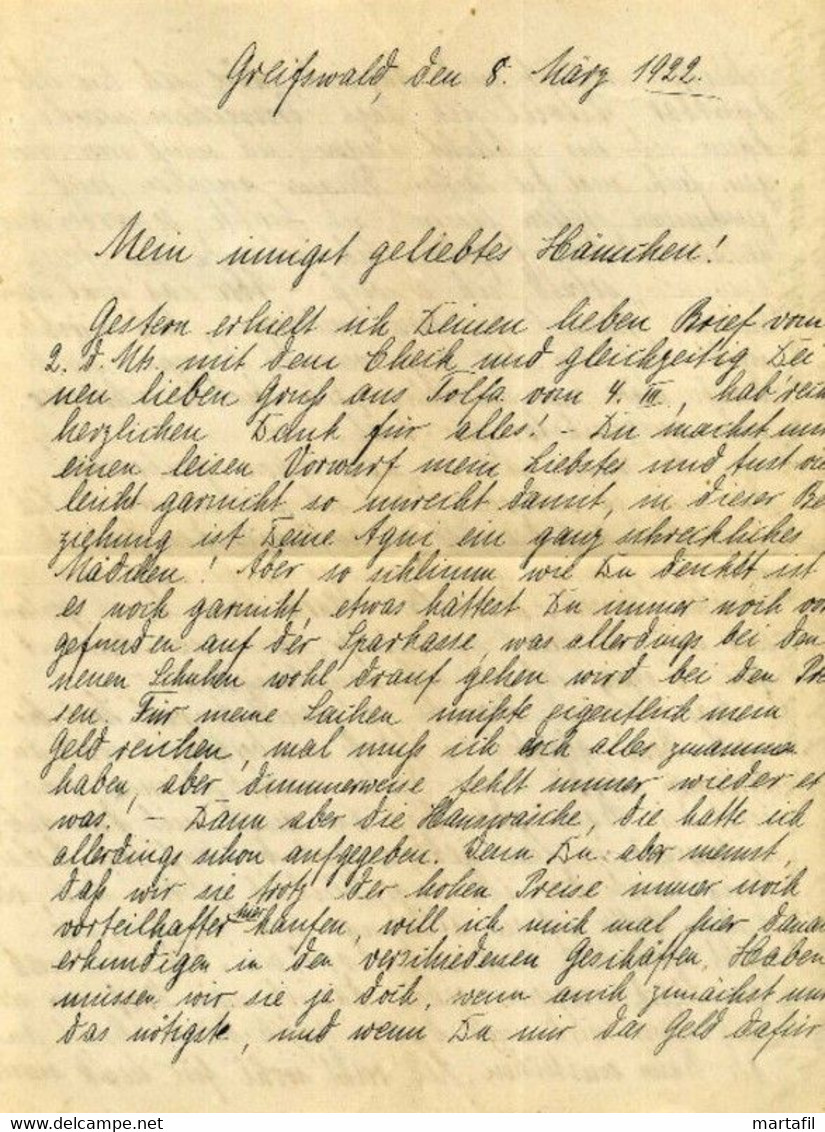 Greifswald, den 8. März 1922.
Mein innigst geliebtes Hänschen!
Gestern erhielt ich Deinen lieben Brief vom
2. d. Mts. mit dem Check und gleichzeitig Dei
nen lieben Gruß aus Tolfa vom 4. III, hab'
herzlichen Dank für alles! – Du machst
einen leisen Vorwurf mein Liebstes und tust
leicht garnicht so unrecht damit, in dieser Be
ziehung ist Deine Agni ein ganz schreckliches
Mädchen! Aber so schlimm wie Du denkst ist
es noch garnicht, etwas hättest Du immer noch vor
gefunden auf der Sparkasse, was allerdings bei den
neuen Schuhen wohl drauf gehen wird bei den Prei
sen. Für meine Sachen müßte eigentlich mein
Geld reichen, mal muß ich doch alles zusammen
haben, aber dummerweise fehlt immer wieder et
was! – Dann aber die Hauswäsche, die hatte ich
allerdings schon aufgegeben. Wenn Du aber meinst,
daß wir sie trotz der hohen Preise immer noch
vorteilhafter hier kaufen, will ich mich mal hier danach
erkundigen in den verschiedenen Geschäften. Haben
müssen wir sie ja doch, wenn auch zunächst nur
das nötigste, und wenn Du mir das Geld dafür
martafil